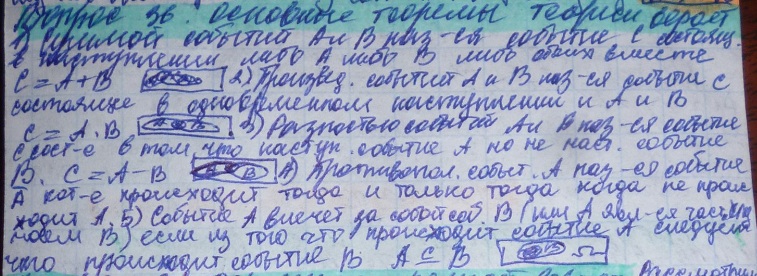 Вопрос 36. Основные теоремы теории вероят
1) Суммой событий А и В наз-ся событие С состоящ.
в наступлении либо А либо В либо обоих вместе
С = А + В 2) Произвед. событий А и В наз-ся событие С
состоящее в одновременном наступлении и А и В
С = А · В 3) Разностью событий А и В наз-ся событие
С сост-е в том, что наступ. событие А но не наст. событие
В. С = А – В А В 4) Противопол. событ. А наз-ся событие
А кот-е происходит тогда и только тогда когда не проис
ходит А. 5) Событие А влечет за собой соб. В (или А явл-ся част
случаем В) если из того что происходит событие А следует
что происходит событие В А ⊆ В Ω